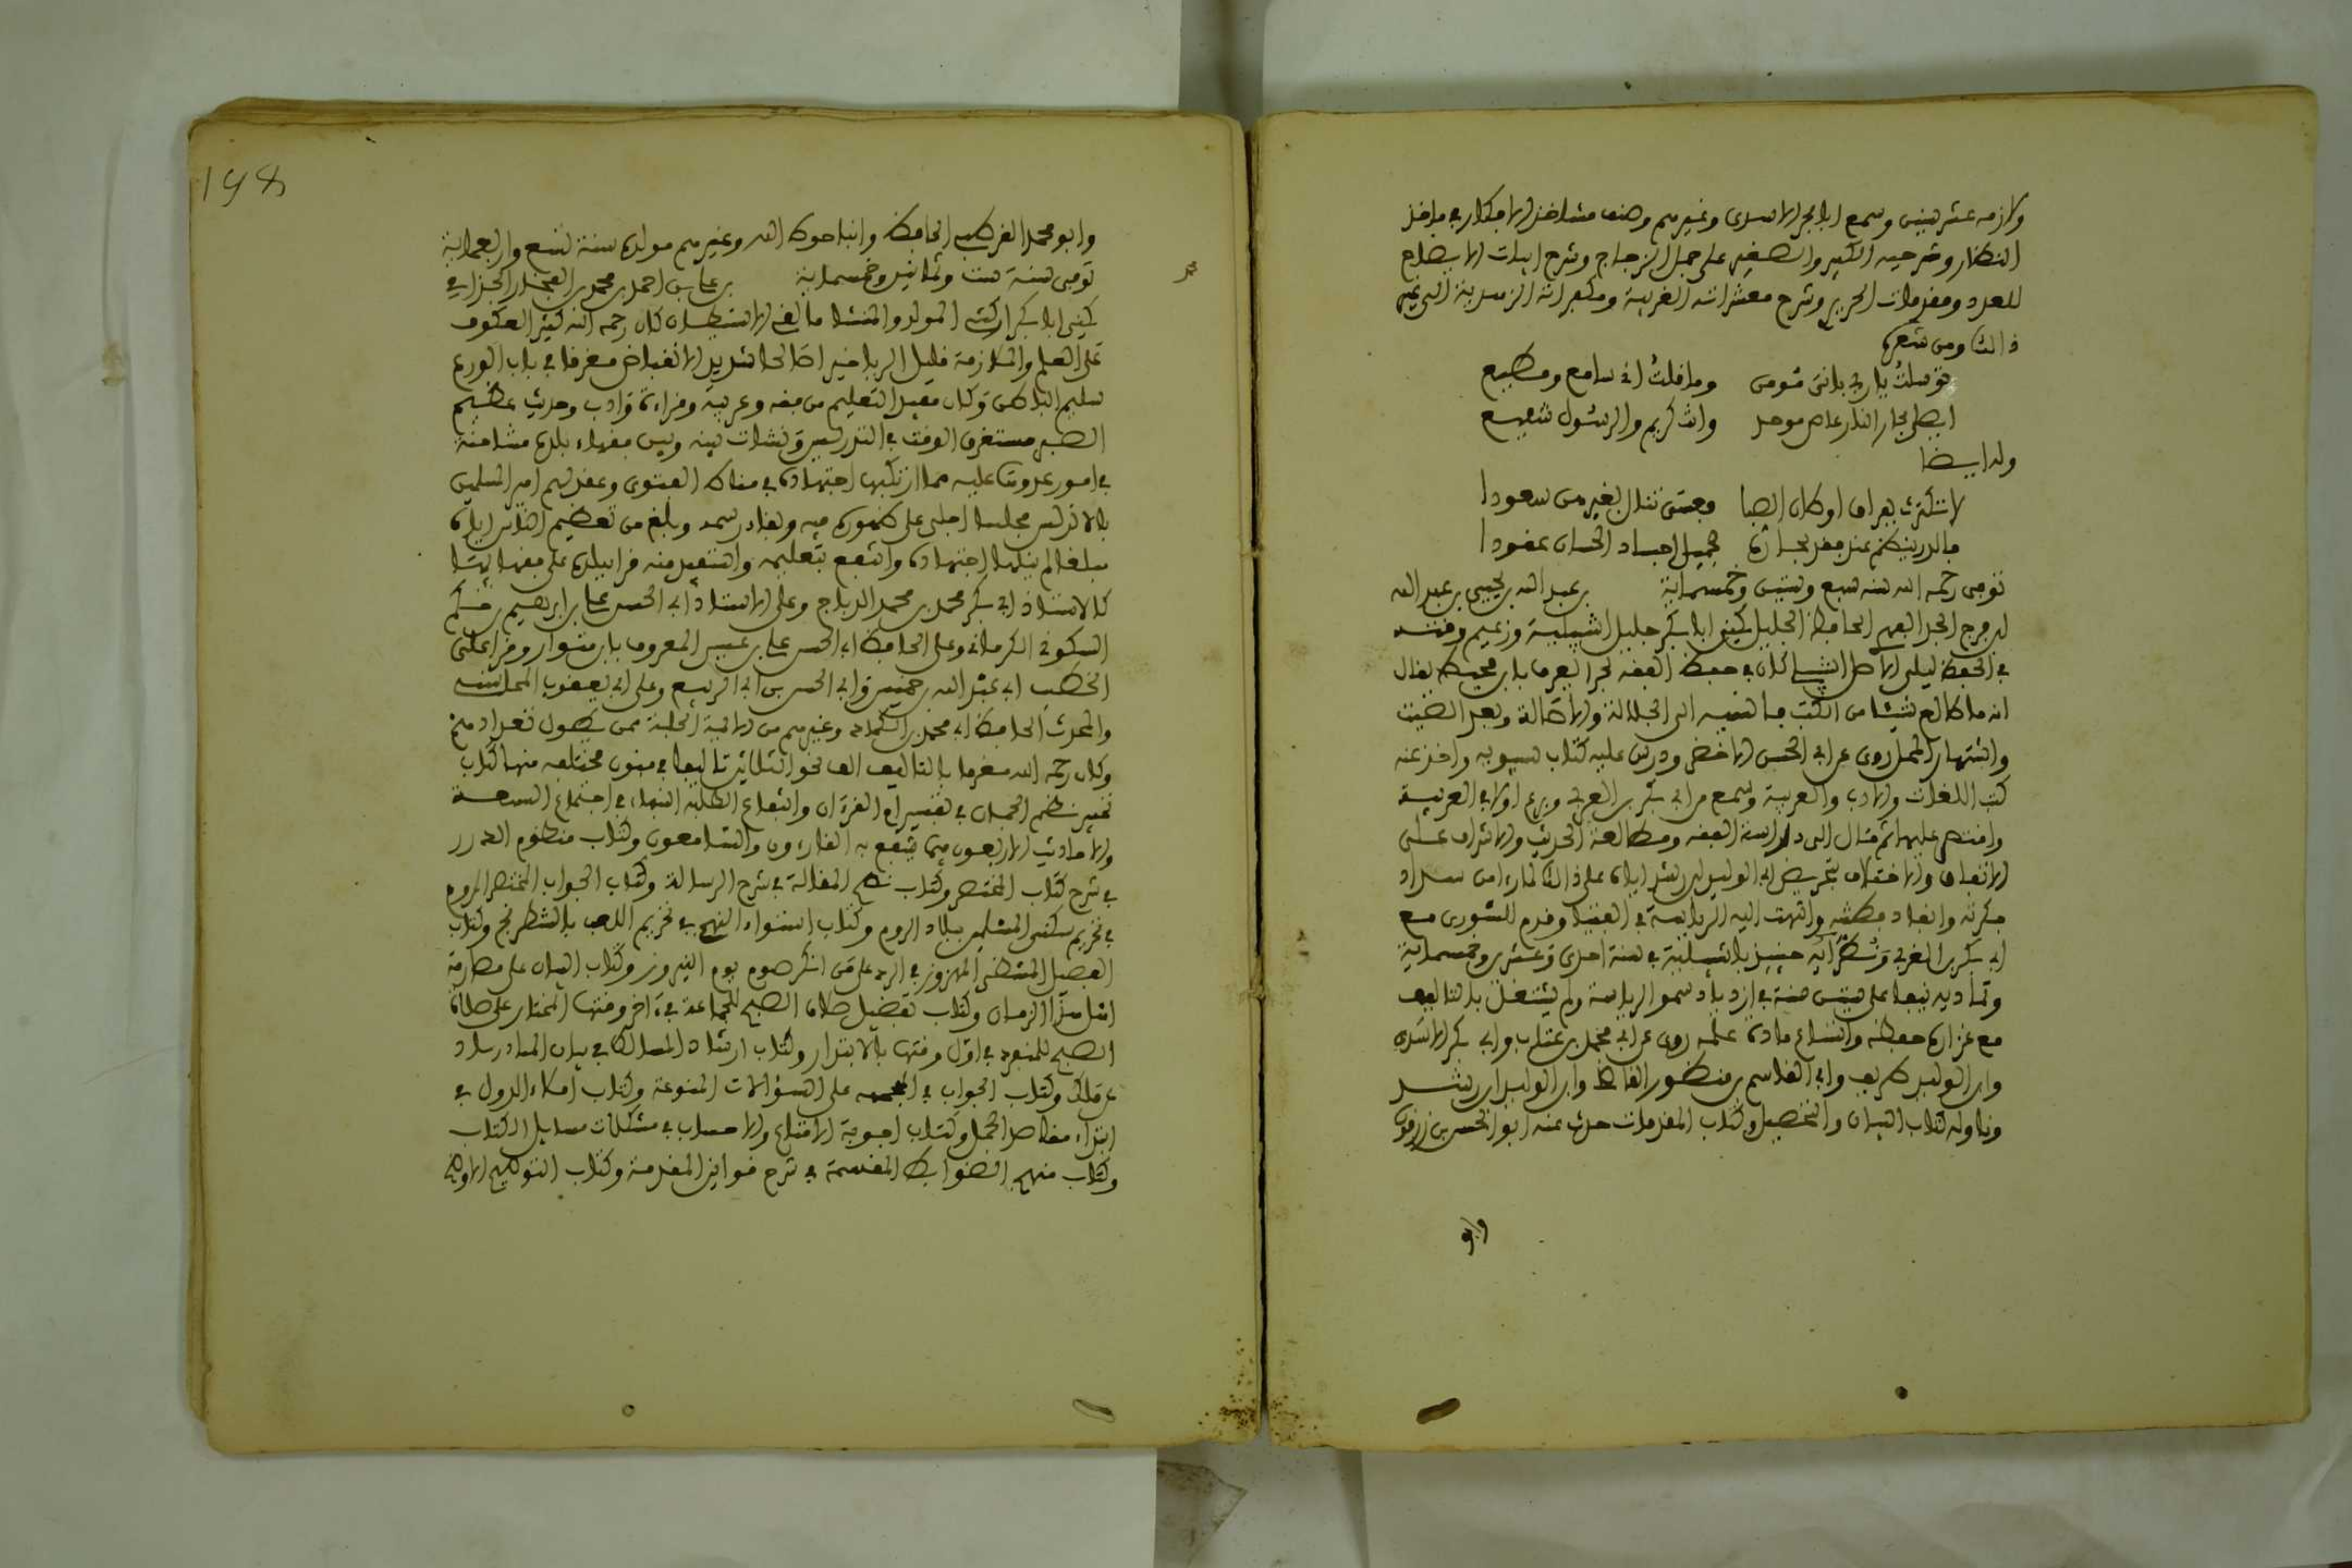 ولازمه عشر سنين وسمع ابا بحر الاسدى وغيرهم وصنف مشاحذ الافكار في ماخذ
النظار وشرحيه الكبير والصغير على جمل الزجاج وشرح ابيات الايضاح
للعدد ومقدمات الحرير وشرح معشراته الغزلية ومكفراته الزهدية الى غير
ذالك ومن شعره
توسلت يا ربي باني مومن وما قلت اني سامع ومطيع
ايصلى بحر النار عاص موحد وانت كريم والرسول شفيع
وله ايضا
لا تكترث بفراق اوطان الصبا فعسى تنال بغيرهن سعودا
فالدر ينظم عند فقد بحاره بجميل اجياد الحسان عقودا
توفي رحمه الله سنه سبع وستين وخمسماية بن عبد الله بن يحيى بن عبد الله
بن فرج الجد الفهري الحافظ الجليل يكنى ابا بكر جليل اشبيلية وزعيم وقته
في الحفظ لبلي الاصل اشبيلي كان في حفظ الفقه بحرا يغرف من محيط يقال
انه ما طالع شيئا من الكتب فانسيه الى الجلالة والاصالة وبعد الصيت
واشتهار المحل روى عن ابي الحسن الاخضر ودرس عليه كتاب سيبويه واخذ عنه
كتب اللغات والادب والعربية وسمع من ابي بكر بن العربي وبرع اولا في العربية
واقتصر عليها ثم مال الى دراسة الفقه ومطالعة الحديث والاشراف على
الاتفاق والاختلاف بتحريض ابي الوليد بن رشد اياه على ذالك لما راى من سداد
فكرته واتقاد فطنته وانتهت اليه الرياسة في الفتيا وقدم للشورى مع
ابي بكر بن العربي ونظرائه حينيذ باشبيلية في سنة احدى وعشرين وخمسماية
وتمادى به نيفا على ستين سنة في ازدياد سمو الرياسة ولم يشتغل بالتاليف
مع غزارة حفظه واتساع مادة علمه روى عن ابي محمد بن عتاب وابي بكر الاسدى
وابي الوليد بن طريف وابي القاسم بن منظور القاضي وابي الوليد بن رشد
وناوله كتاب البيان والتحصيل وكتاب المقدمات حدث عنه ابو الحسن بن زرقون
وابو
198
وابو محمد القرطبي الحافظ وابنا حوط الله وغيرهم مولده سنة تسع واربعماية
توفي سنة ست وثمانين وخمسماية بن علي بن احمد بن محمد بن الفخار الجذامي
يكنى ابا بكر اركشي المولد والمنشا مالقي الاستيطان كان رحمه الله كثير العكوف
على العلم والملازمة قليل الريا خيرا صالحا شديد الانقباض مغرقا في باب الورع
سليم الباطن وكان مفيد التعليم من فقه وعربية وقراءة وادب وحديث عظيم
الصبر مستغرق الوقت في التدريس ونشات بينه وبين فقهاء بلده مشاحنة
في امور عدوت عليه مما ارتكبها اجتهاده في مناط الفتوى وعقد لهم امير المسلمين
بالاندلس مجلسا اجلى على ظهوره فيه وبقاء رسمه وبلغ من تعظيم الناس اياه
مبلغا لم ينله اجتهاده وانتفع بتعليمه واستفيد منه قرا ببلده على فقهايها
كالاستاذ ابي بكر محمد بن محمد الدباج وعلى الاستاذ ابي الحسن علي بن ابرهيم بن حكم
السكوني الكرماني وعلى الحافظ ابي الحسن علي بن عيسى المعروف بابن متيوان وقرا على
الخطيب ابي عبد الله بن خميس وابي الحسن بن ابي الربيع وعلى ابي يعقوب المحاسبي
والمحدث الحافظ ابي محمد بن الكماد وغيرهم من الايمة الجلة ممن يطول تعدادهم
وكان رحمه الله مغرما بالتاليف الف نحو الثلاثين تاليفا في فنون مختلفه منها كتاب
تحبير نظم الجمان في تفسير ام القرءان وانتفاع الطلبة النبهاء في اجتماع السبعة
والاحاديث الاربعون فيما ينتفع به القارءون والسامعون وكتاب منظوم الدرر
في شرح كتاب المختصر وكتاب نصح المقالة في شرح الرسالة وكتاب الجواب المختصر المروم
في تحريم سكنى المسلمين ببلاد الروم وكتاب استواء النهج في تحريم اللعب بالشطرنج وكتاب
الفصيل المنتضى المهزوز في الرد على من انكر صوم يوم النيروز وكتاب البيان على مصارمة
اهل هذا الزمان وكتاب تفضيل صلاة الصبح للجماعة في ءاخر وقتها المختار على صلاة
الصبح للمنفرد في اول وقتها بالابتدار وكتاب ارشاد المسالك في بيان اسناد زياد
عن مالك وكتاب الجواب في المجسه على السؤالات المنوعة وكتاب املاء الدول في
ابتداء مقاصد الجمل وكتاب اجوبة الاقناع والاحساب في مشكلات مسايل الكتاب
وكتاب منهج الضوابط المقسمة في شرح قوانين المقدمة وكتاب التوضيح الاوضح